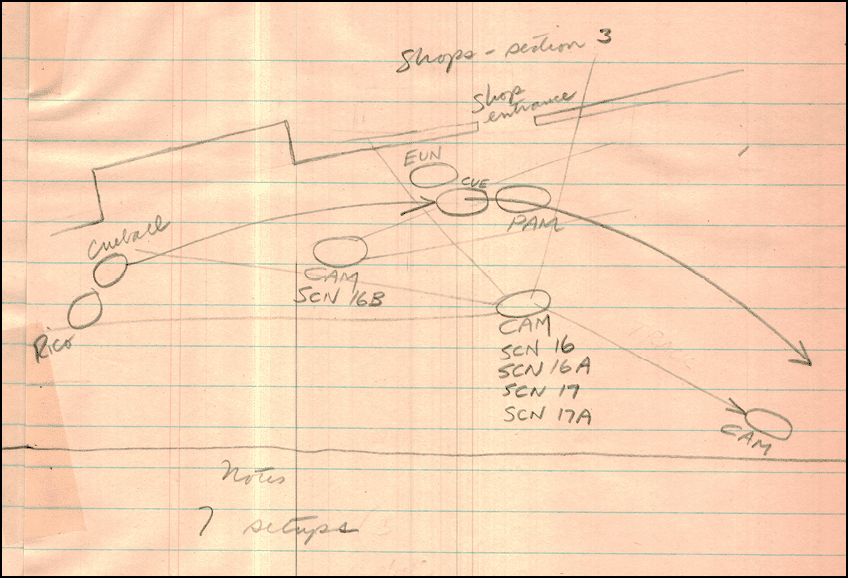 Shops - section 3
Shop
entrance
EUN
CUE
PAM
Cueball
CAM
SCN 16B
Rico
CAM
SCN 16
SCN 16A
SCN 17
SCN 17A
CAM
Notes
7 setups